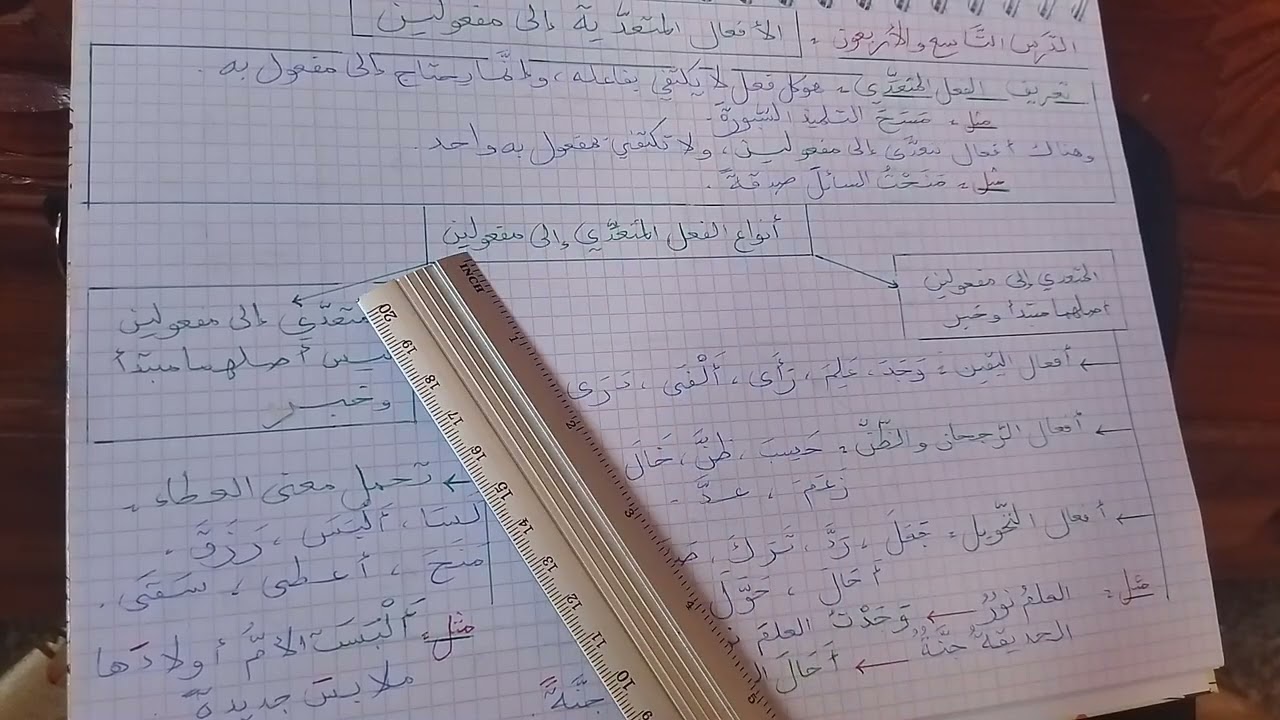 الدرس التاسع والأربعون : الأفعال المتعدّية إلى مفعولين
تعريف الفعل المتعدّي : هو كل فعل لا يكتفي بفاعله، وإنّما يحتاج إلى مفعول به .
مثل : مَسَحَ التلميذ السّبورةَ .
وهناك أفعال تتعدّى إلى مفعولين، ولا تكتفي بمفعول به واحد .
مثل : مَنَحْتُ السائلَ صدقةً .
أنواع الفعل المتعدّي إلى مفعولين
المتعدي إلى مفعولين
أصلهما مبتدأ وخبر
أفعال اليقين : وَجَدَ، عَلِمَ، رَأَى، أَلْفَى، تَرَى
أفعال الرّجحان والظّنّ : حَسِبَ، ظَنَّ، خَالَ
زَعَمَ، عدَّ .
أفعال التّحويل : جَعَلَ، رَدَّ، تَرَكَ،
أَحَالَ، حَوَّلَ
مثل : العلمُ نورٌ ← وَجَدْتُ العلمَ
الحديقةُ جنَّةٌ ← أَحَالَ
جنَّةً .
متعدّي إلى مفعولين
ليس أصلهما مبتدأ
وخبر
← تحمل معنى العطاء .
كَسَا، أَلْبَسَ، رَزَقَ .
مَنَحَ، أعطى، سَقَى .
مثل : أَلْبَسَت الأمُّ أولادَها
ملابسَ جديدةً
INCH
1
2
3
4
5
20
19
18
17
16
15
14
13
12
11
10
9